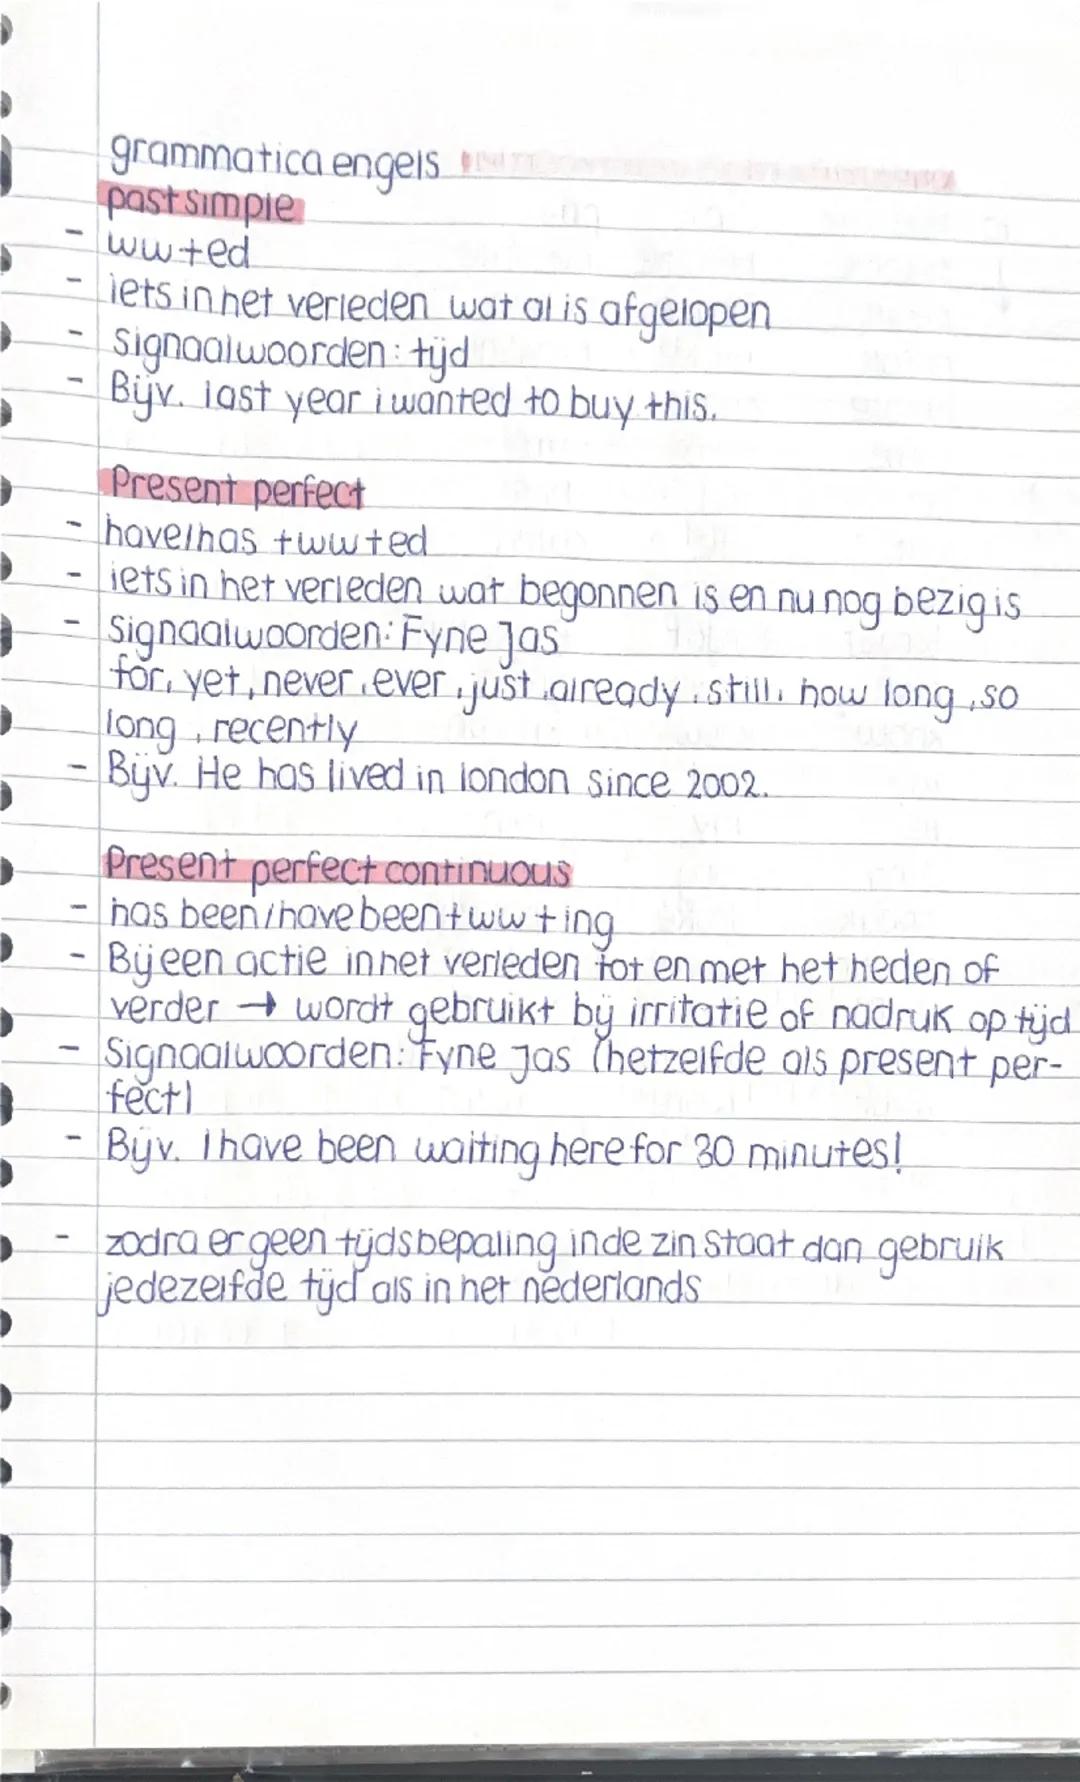 grammatica engels
past simple
- ww + ed
- iets in het verleden wat al is afgelopen
- signaalwoorden: tijd
- Bijv. last year i wanted to buy this.
Present perfect
- have/has + ww + ed
- iets in het verleden wat begonnen is en nu nog bezig is
- signaalwoorden: Fyne Jas
for, yet, never, ever, just, already, still, how long, so
long, recently
- Bijv. He has lived in london since 2002.
Present perfect continuous
- has been/have been + ww + ing
- Bij een actie in het verleden tot en met het heden of
verder → wordt gebruikt bij irritatie of nadruk op tijd
- Signaalwoorden: Fyne Jas (hetzelfde als present per-
fect)
- Bijv. I have been waiting here for 30 minutes!
- zodra er geen tijdsbepaling in de zin staat dan gebruik
je dezelfde tijd als in het nederlands